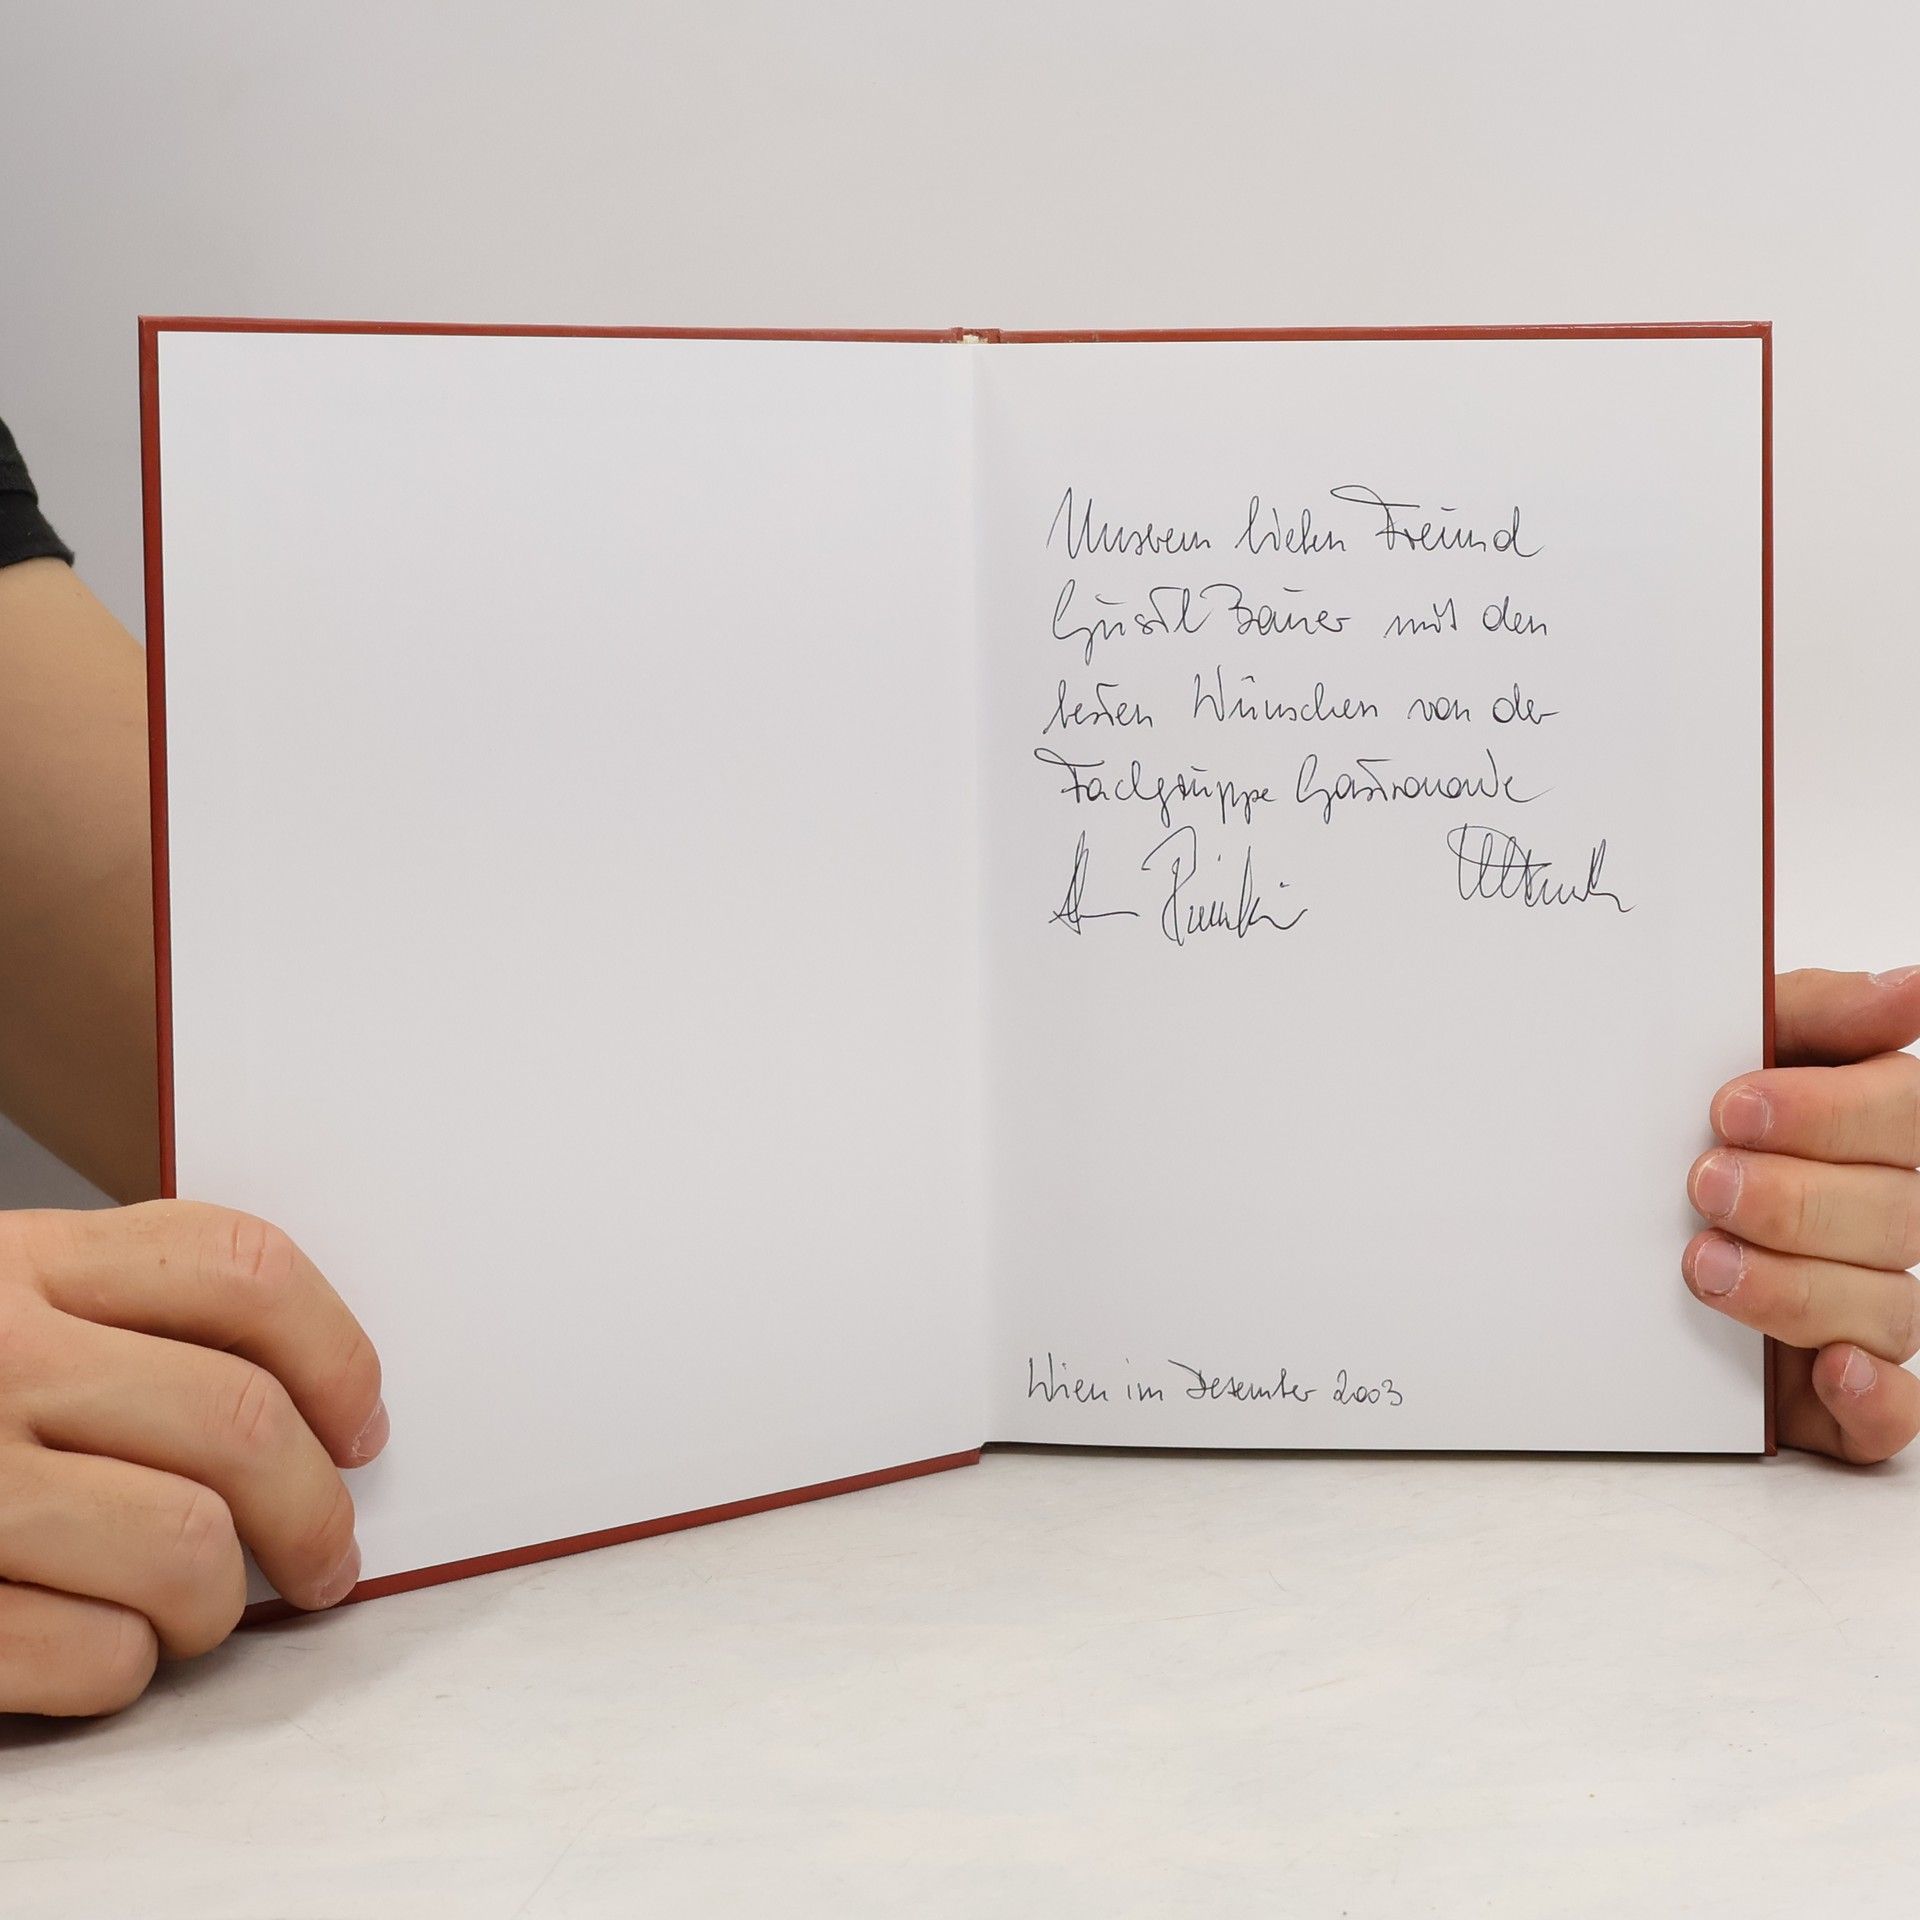 Unserem lieben Freund
Gustl Bauer mit den
besten Wünschen von der
Fachgruppe Gastronomie
Wien im Dezember 2003